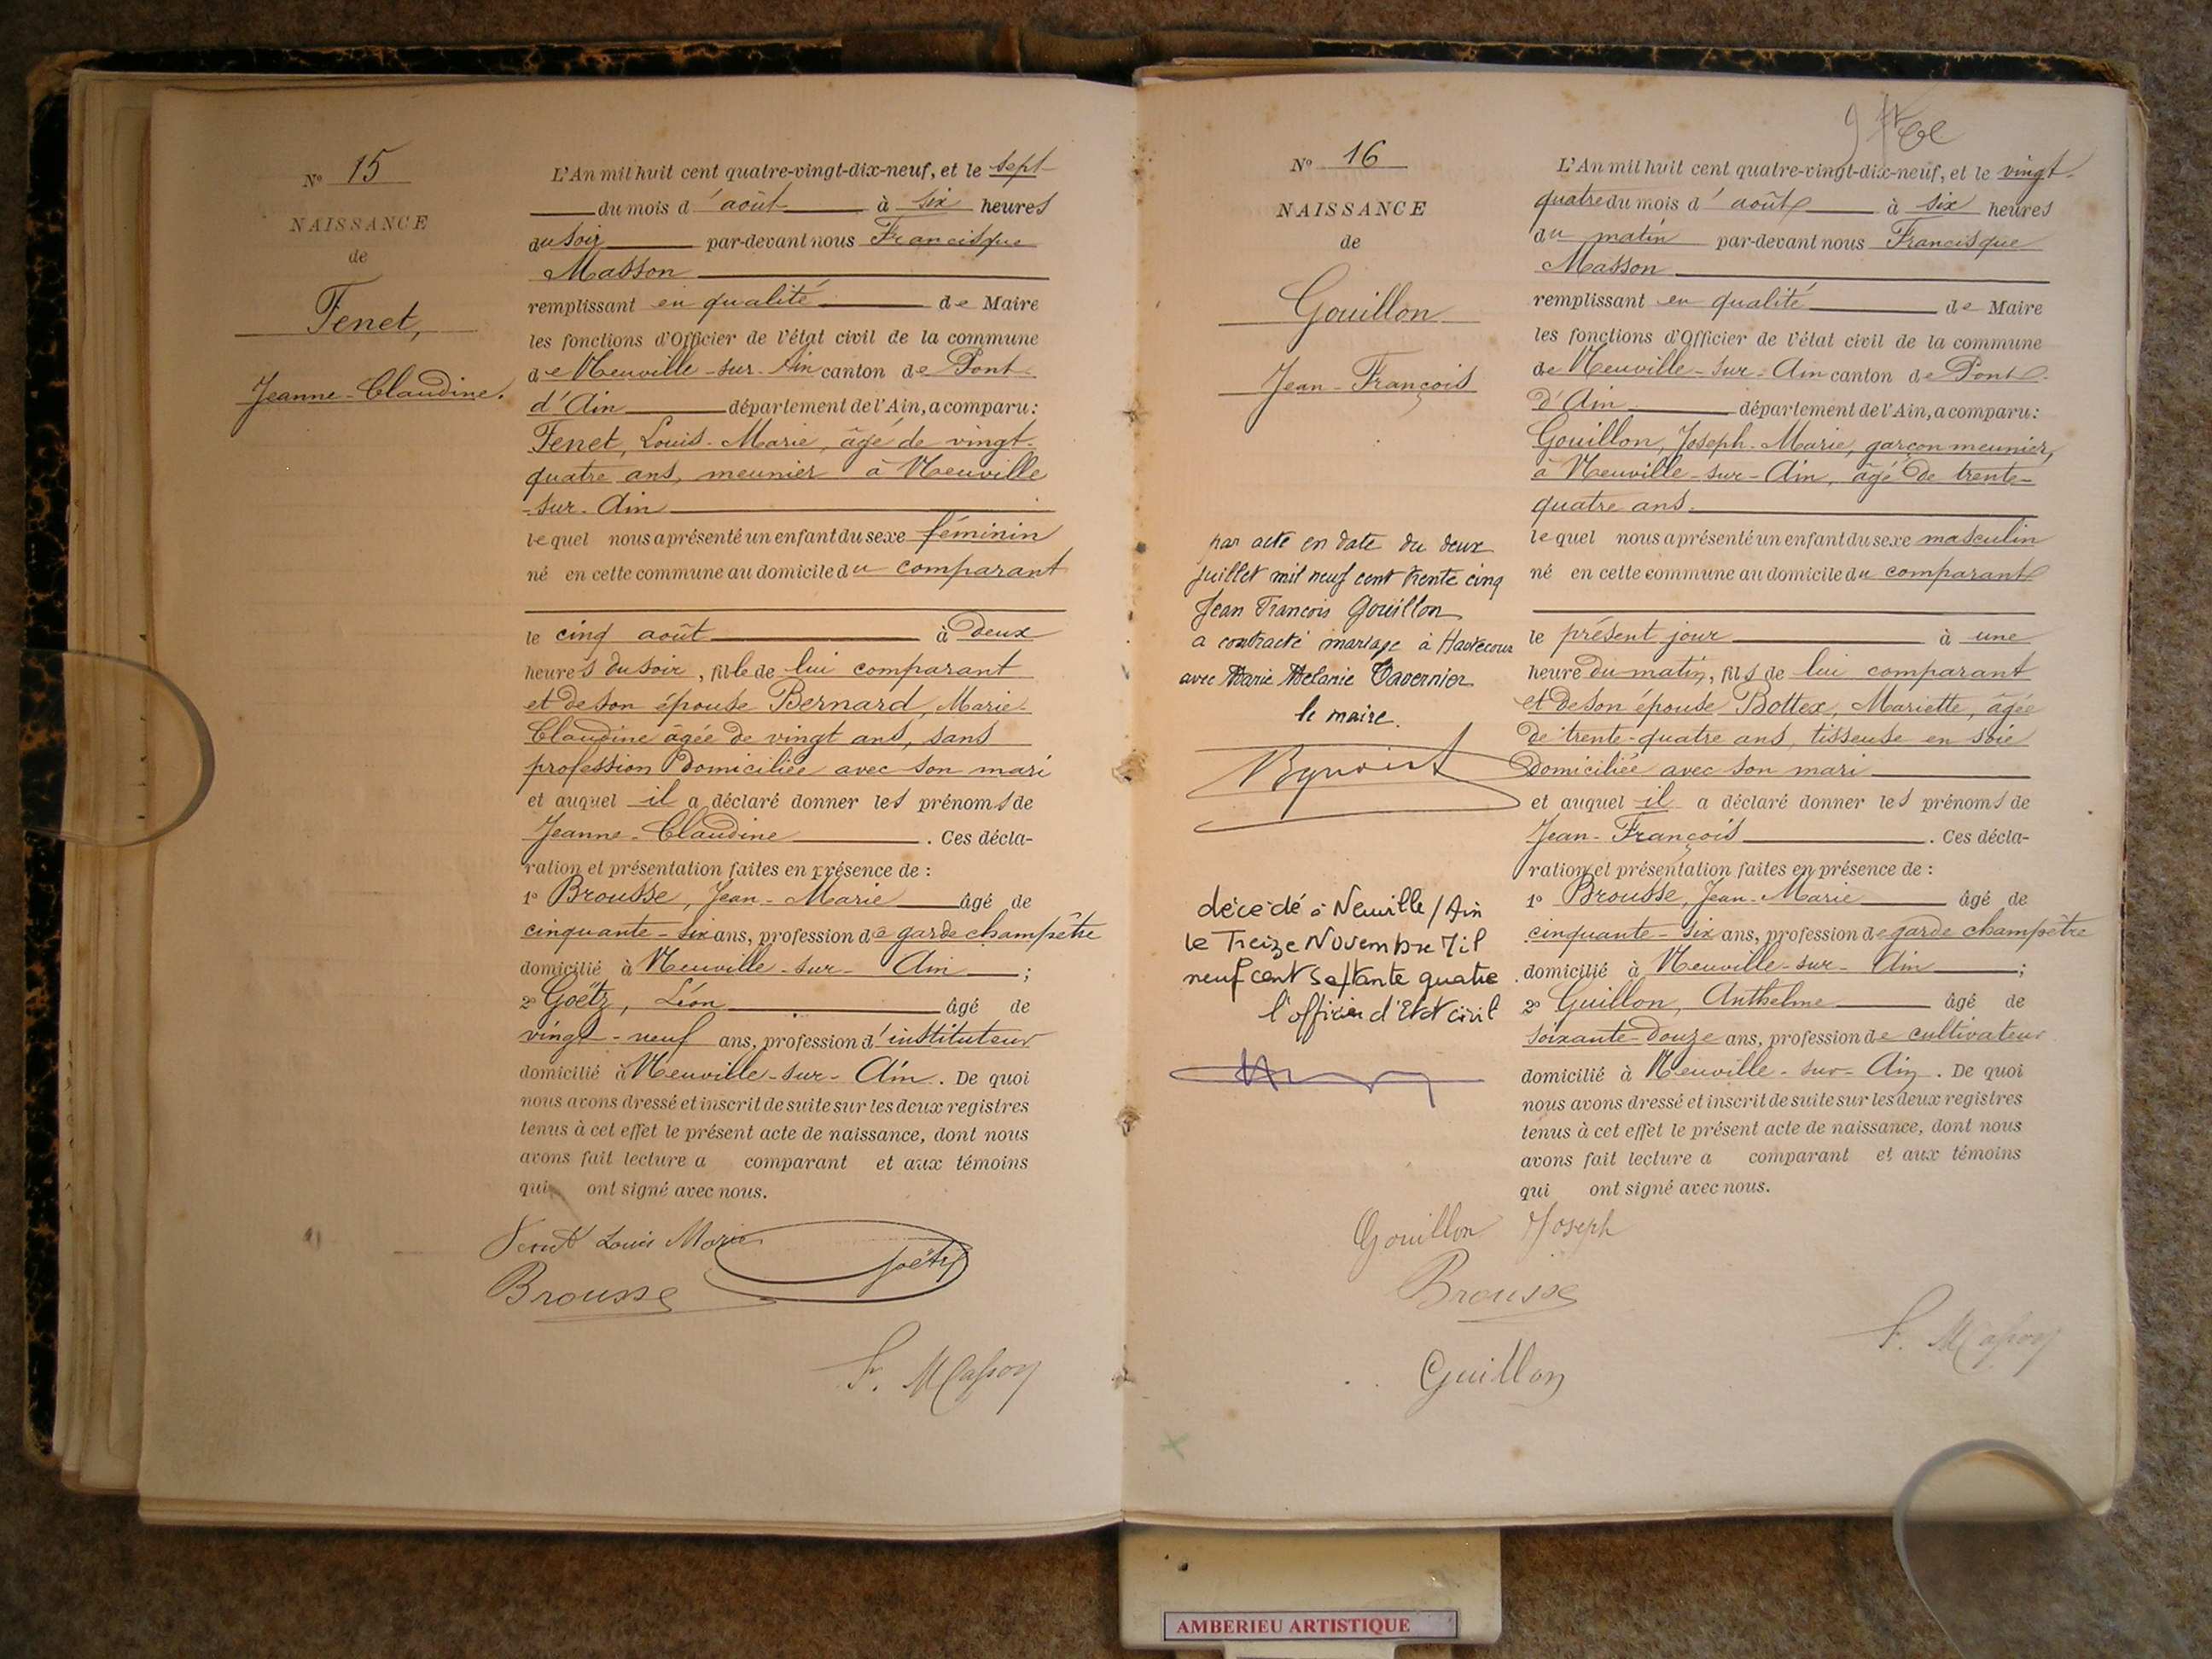 N° 15
NAISSANCE
de
Fenet,
Jeanne-Claudine.
L'An mil huit cent quatre-vingt-dix-neuf, et le sept
du mois d'août à six heures
du soir par-devant nous Francisque
Masson
remplissant en qualité de Maire
les fonctions d'Officier de l'état civil de la commune
de Neuville-sur-Ain canton de Pont-
d'Ain département de l'Ain, a comparu :
Fenet, Louis-Marie, âgé de vingt-
quatre ans, meunier à Neuville
-sur-Ain
lequel nous a présenté un enfant du sexe féminin
né en cette commune au domicile du comparant
le cinq août à deux
heures du soir, fille de lui comparant
et de son épouse Bernard, Marie-
Claudine âgée de vingt ans, sans
profession domiciliée avec son mari
et auquel il a déclaré donner les prénoms de
Jeanne-Claudine. Ces décla-
ration et présentation faites en présence de :
1° Brousse, Jean-Marie âgé de
cinquante-six ans, profession de garde champêtre
domicilié à Neuville-sur-Ain ;
2° Goëtz, Léon âgé de
vingt-neuf ans, profession d'instituteur
domicilié à Neuville-sur-Ain. De quoi
nous avons dressé et inscrit de suite sur les deux registres
tenus à cet effet le présent acte de naissance, dont nous
avons fait lecture a comparant et aux témoins
qui ont signé avec nous.
Fenet Louis Marie
Goëtz
Brousse
F. Masson
N° 16
NAISSANCE
de
Gouillon
Jean-François
par acte en date du deux
juillet mil neuf cent trente cinq
Jean François Gouillon
a contracté mariage à Hautecour
avec Marie Mélanie Tavernier
le maire.
décédé à Neuville/Ain
le Treize Novembre Mil
neuf cent septante quatre
l'officier d'Etat civil
L'An mil huit cent quatre-vingt-dix-neuf, et le vingt-
quatre du mois d'août à six heures
du matin par-devant nous Francisque
Masson
remplissant en qualité de Maire
les fonctions d'Officier de l'état civil de la commune
de Neuville-sur-Ain canton de Pont-
d'Ain département de l'Ain, a comparu :
Gouillon, Joseph-Marie, garçon meunier,
à Neuville-sur-Ain, âgé de trente-
quatre ans.
lequel nous a présenté un enfant du sexe masculin
né en cette commune au domicile du comparant
le présent jour à une
heure du matin, fils de lui comparant
et de son épouse Bottex, Mariette, âgée
de trente-quatre ans, tisseuse en soie
domiciliée avec son mari
et auquel il a déclaré donner les prénoms de
Jean-François. Ces décla-
ration et présentation faites en présence de :
1° Brousse, Jean-Marie âgé de
cinquante-six ans, profession de garde champêtre
domicilié à Neuville-sur-Ain ;
2° Guillon, Anthelme âgé de
soixante-douze ans, profession de cultivateur
domicilié à Neuville-sur-Ain. De quoi
nous avons dressé et inscrit de suite sur les deux registres
tenus à cet effet le présent acte de naissance, dont nous
avons fait lecture a comparant et aux témoins
qui ont signé avec nous.
Gouillon Joseph
Brousse
F. Masson
Guillon
AMBERIEU ARTISTIQUE